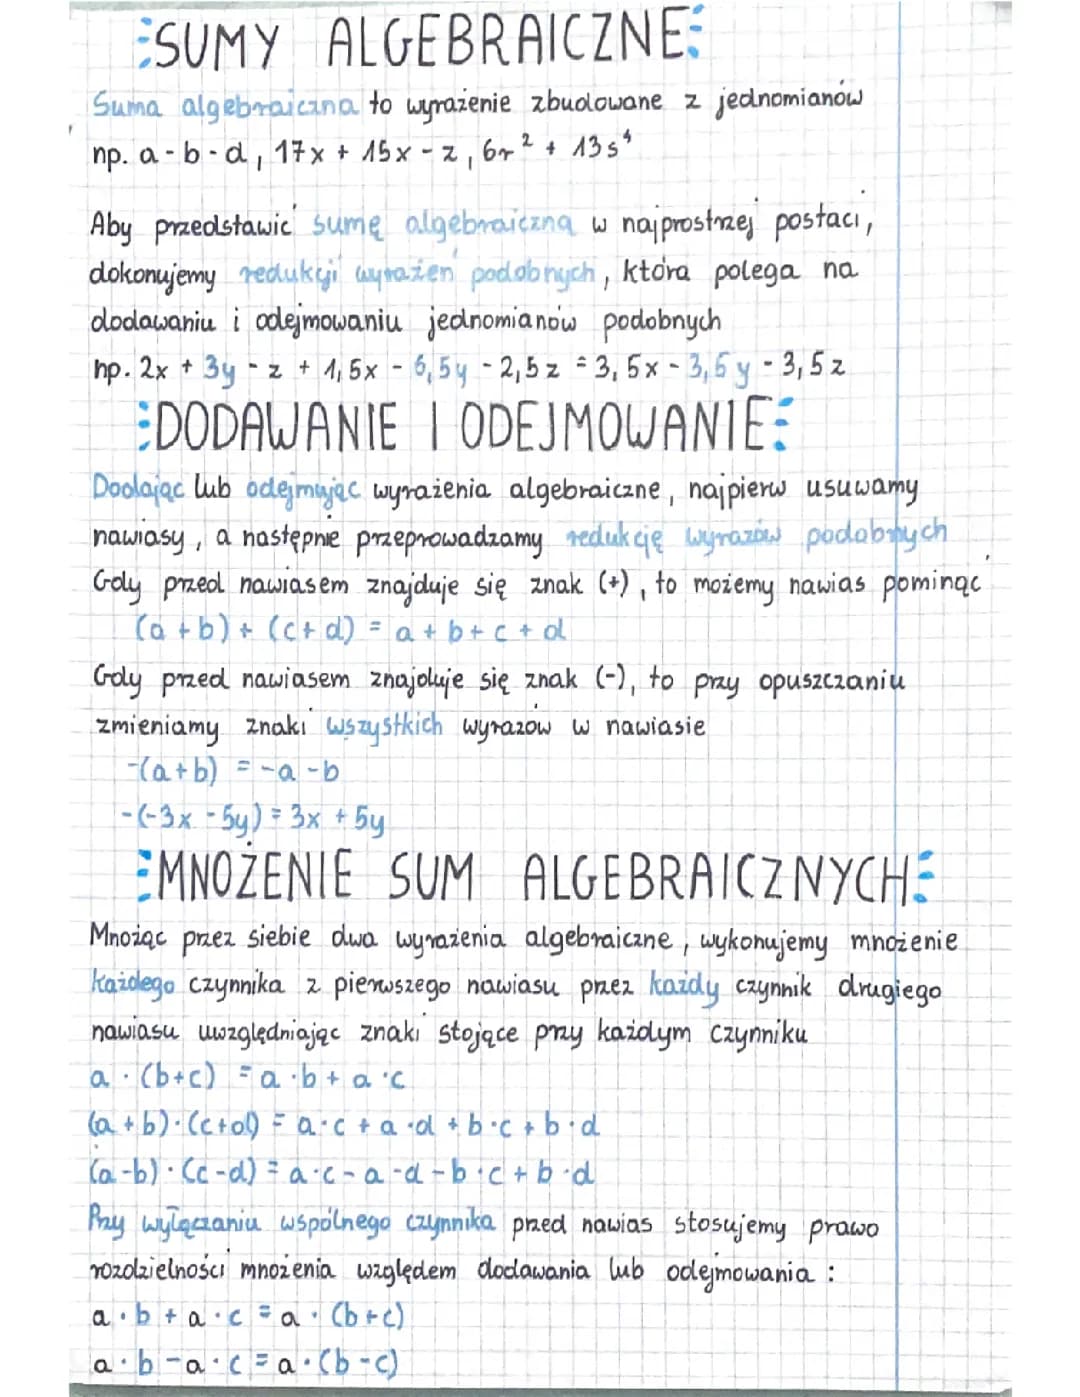 SUMY ALGEBRAICZNE
Suma algebraiczna to wyrażenie zbudowane z jednomianów
np. a - b - d, 17x + 15x - z, 6r² + 13s⁴
Aby przedstawić sumę algebraiczną w najprostrzej postaci,
dokonujemy redukcji wyrażeń podobnych, która polega na
dodawaniu i odejmowaniu jednomianów podobnych
np. 2x + 3y - z + 1,5x - 6,5y - 2,5z = 3,5x - 3,5y - 3,5z
DODAWANIE I ODEJMOWANIE
Dodając lub odejmując wyrażenia algebraiczne, najpierw usuwamy
nawiasy, a następnie przeprowadzamy redukcję wyrazów podobnych
Gdy przed nawiasem znajduje się znak (+), to możemy nawias pominąć
(a + b) + (c + d) = a + b + c + d
Gdy przed nawiasem znajduje się znak (-), to przy opuszczaniu
zmieniamy znaki wszystkich wyrazów w nawiasie
-(a + b) = -a - b
-(-3x - 5y) = 3x + 5y
MNOŻENIE SUM ALGEBRAICZNYCH
Mnożąc przez siebie dwa wyrażenia algebraiczne, wykonujemy mnożenie
każdego czynnika z pierwszego nawiasu przez każdy czynnik drugiego
nawiasu uwzględniając znaki stojące przy każdym czynniku
a · (b+c) = a · b + a · c
(a + b) · (c+d) = a · c + a · d + b · c + b · d
(a - b) · (c - d) = a · c - a · d - b · c + b · d
Przy wyłączaniu wspólnego czynnika przed nawias stosujemy prawo
rozdzielności mnożenia względem dodawania lub odejmowania :
a · b + a · c = a · (b + c)
a · b - a · c = a · (b - c)